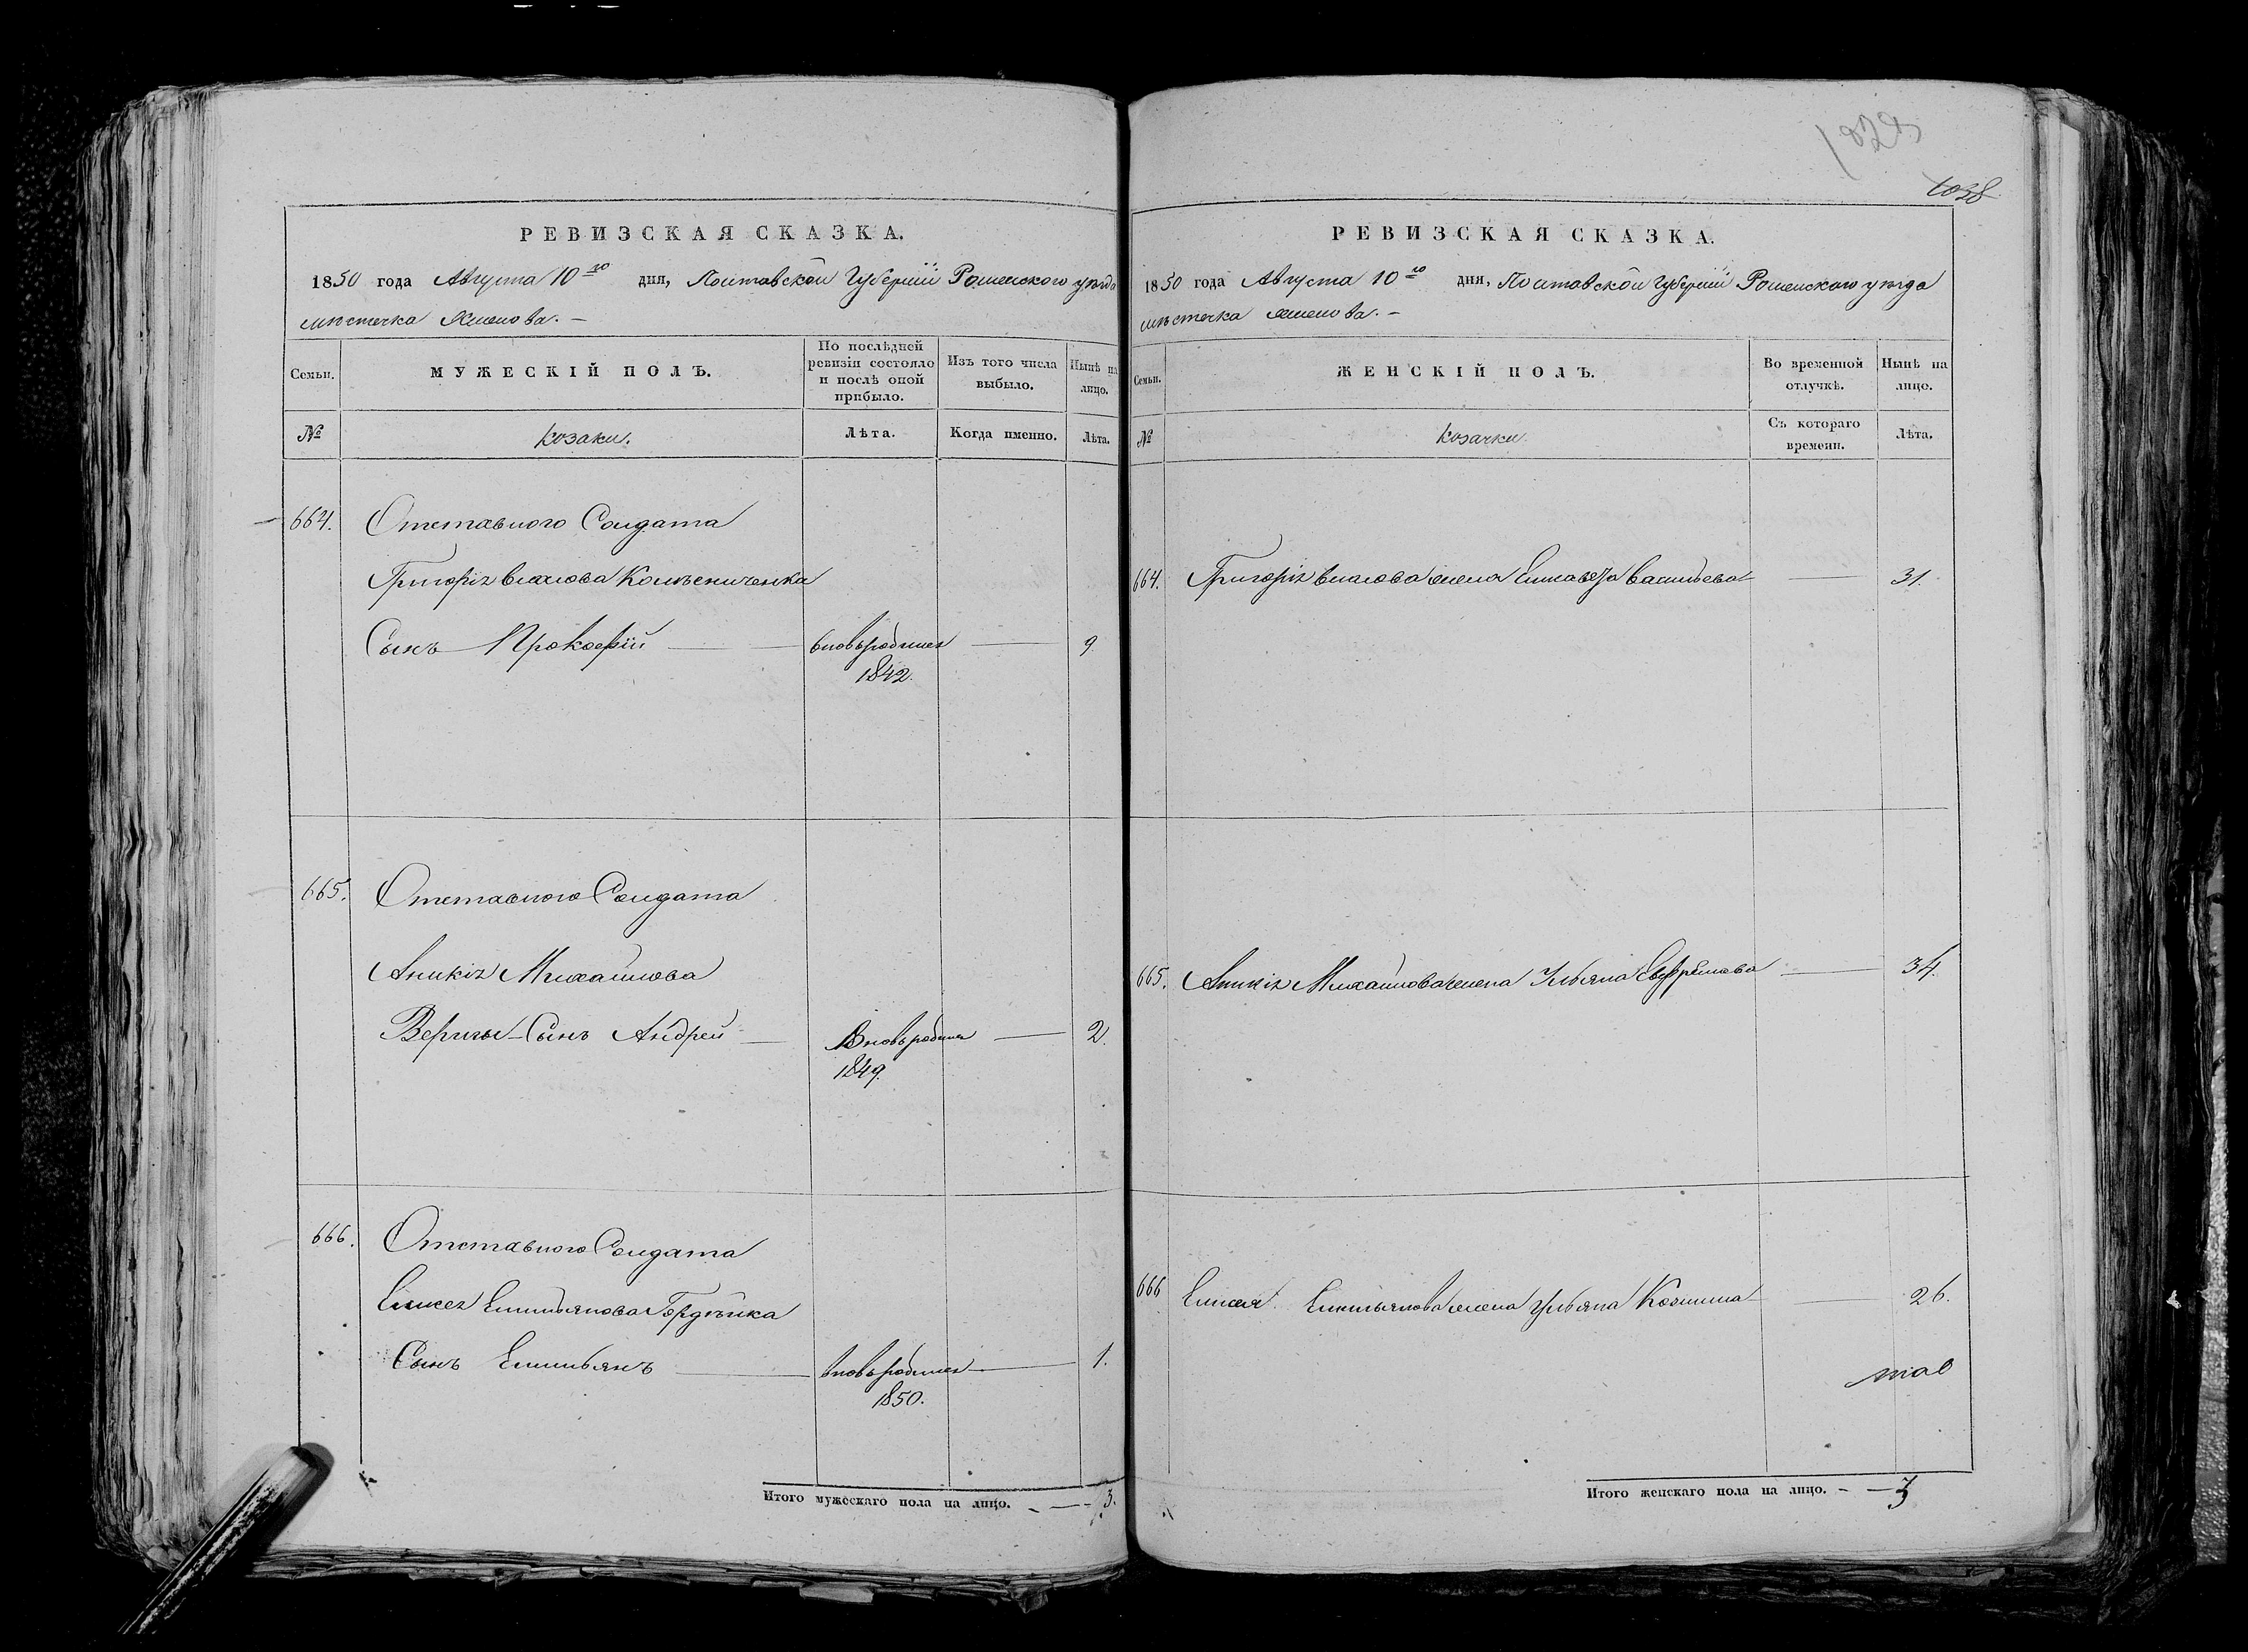 РЕВИЗСКАЯ СКАЗКА.
1850 года Августа 10го дня, Полтавской Губерніи Роменского уѣзда
мѣстечка
Семьи.
МУЖЕСКІЙ ПОЛЪ.
По послѣдней ревизіи состояло и послѣ оной прибыло.
Изъ того числа выбыло.
Нынѣ на лицо.
№
козаки.
Лѣта.
Когда именно.
Лѣта.
664. Отставного Солдата
Григорія Власова Колѣсниченка
Сынъ Прокофій вновьродился 9
1842.
665. Отставного Солдата
Аникія Михайлова
Веригы Сынъ Андрей Вновьродился 2.
1849.
666. Отставного Солдата
Елисея Емильянова Гордѣйка
Сынъ Емильянъ вновьродился 1.
1850.
Итого мужескаго пола на лицо. 3.
1038
РЕВИЗСКАЯ СКАЗКА.
1850 года Августа 10го дня, Полтавской Губерніи Роменского уѣзда
мѣстечка
Семьи.
ЖЕНСКІЙ ПОЛЪ.
Во временной отлучкѣ.
Нынѣ на лицо.
№
козачки.
Съ котораго времени.
Лѣта.
664. Григорія Власова жена Елисавета Васильева 31.
665. Аникія Михайлова жена Ульяна Ефремова 34.
666 Елисея Емильянова жена Ульяна Козмина 26.
Итого женскаго пола на лицо. 3